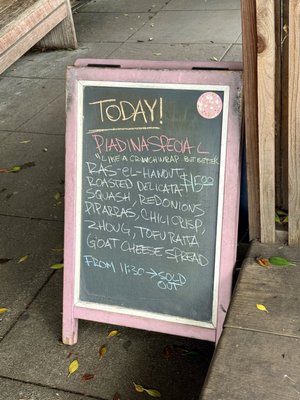 TODAY!
PIADINA SPECIAL
"LIKE A CRUNCHWRAP BUT BETTER"
RAS-EL-HANOUT
ROASTED DELICATA $15.00
SQUASH, RED ONIONS
PIPARRAS, CHILI CRISP,
ZHOUG, TOFU RAITA
GOAT CHEESE SPREAD
FROM 11:30 → SOLD
OUT